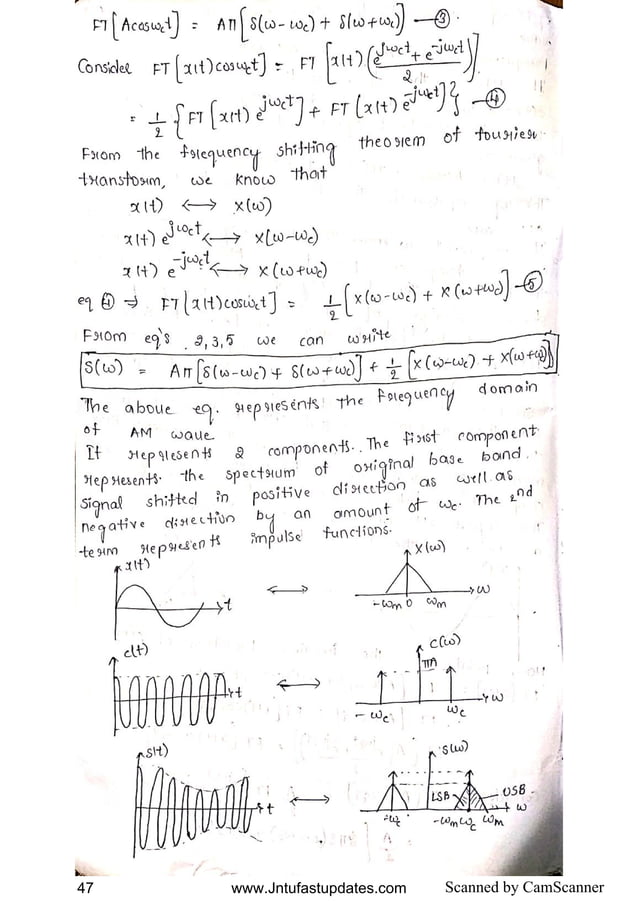 FT[Acosωct] = Aπ[δ(ω-ωc) + δ(ω+ωc)] — ③
Consider FT[x(t)cosωct] = FT[x(t)(e^jωct + e^-jωct / 2)]
= 1/2 {FT[x(t) e^jωct] + FT[x(t) e^-jωct]} — ④
From the frequency shifting theorem of fourier
transform, we know that
x(t) ⟷ X(ω)
x(t) e^jωct ⟷ X(ω-ωc)
x(t) e^-jωct ⟷ X(ω+ωc)
eq ④ ⇒ FT[x(t)cosωct] = 1/2 [X(ω-ωc) + X(ω+ωc)] — ⑤
From eq's 2,3,5 we can write
S(ω) = Aπ[δ(ω-ωc) + δ(ω+ωc)] + 1/2 [X(ω-ωc) + X(ω+ωc)]
The above eq. represents the frequency domain
of AM wave
It represents 2 components. The first component
represents the spectrum of original base band
signal shifted in positive direction as well as
negative direction by an amount of ωc. The 2nd
-term represents impulse functions.
x(t)
t
⟷
X(ω)
-ωm 0 ωm
ω
c(t)
t
⟷
C(ω)
πA
-ωc
ωc
ω
s(t)
t
⟷
S(ω)
LSB
USB
-ωc
-ωm ωc ωm
ω
47
www.Jntufastupdates.com
Scanned by CamScanner